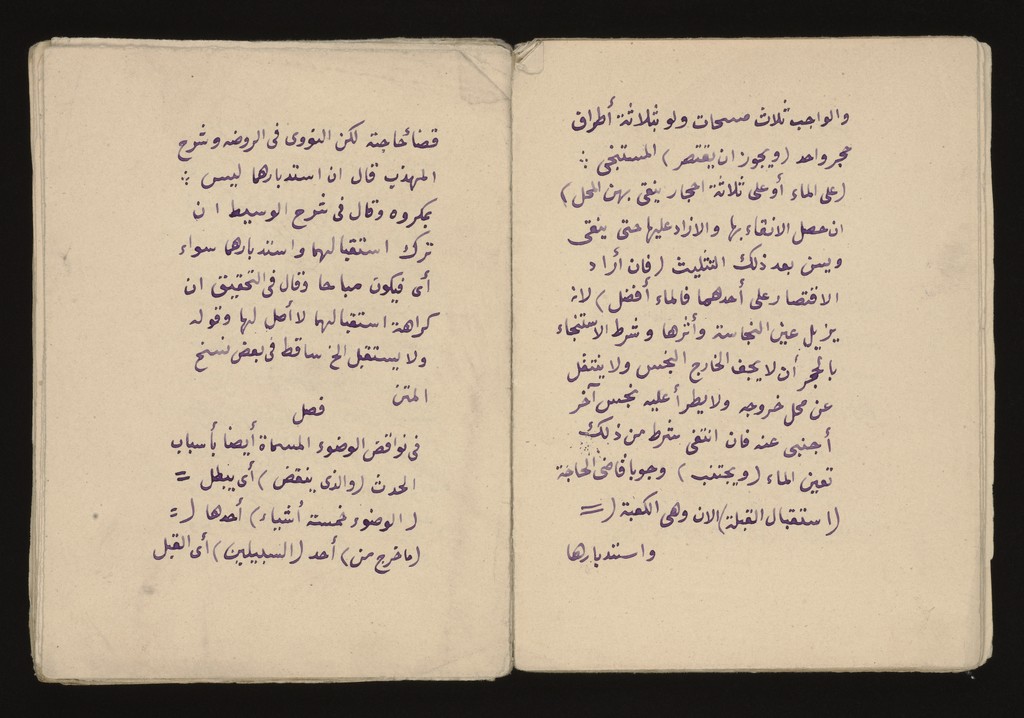 والواجب ثلاث مسحات ولو بثلاثة أطراف
حجر واحد (ويجوز ان يقتصر) المستنجى
(على الماء أو على ثلاثة احجار ينقى بهن المحل)
ان حصل الانقاء بها والا زاد عليها حتى ينقى
ويسن بعد ذلك التثليث (فان أراد
الاقتصار على أحدهما فالماء أفضل) لانه
يزيل عين النجاسة وأثرها وشرط الاستنجاء
بالحجر أن لا يجف الخارج النجس ولا ينتقل
عن محل خروجه ولا يطرأ عليه نجس آخر
أجنبى عنه فان انتفى شرط من ذلك
تعين الماء (ويجتنب) وجوبا قاضى الحاجة
(استقبال القبلة) الان وهى الكعبة (=
واستدبارها
قضاء حاجته لكن النووى فى الروضه وشرح
المهذب قال ان استدبارها ليس
بمكروه وقال فى شرح الوسيط ان
ترك استقبالهما واستدبارهما سواء
أى فيكون مباحا وقال فى التحقيق ان
كراهة استقبالهما لا أصل لها وقوله
ولا يستقبل الخ ساقط فى بعض نسخ
المتن
فصل
فى نواقض الوضوء المسماة أيضا بأسباب
الحدث (والذى ينقض) أى يبطل =
(الوضوء خمسة أشياء) أحدها (=
(ماخرج من) أحد (السبيلين) أى القبل